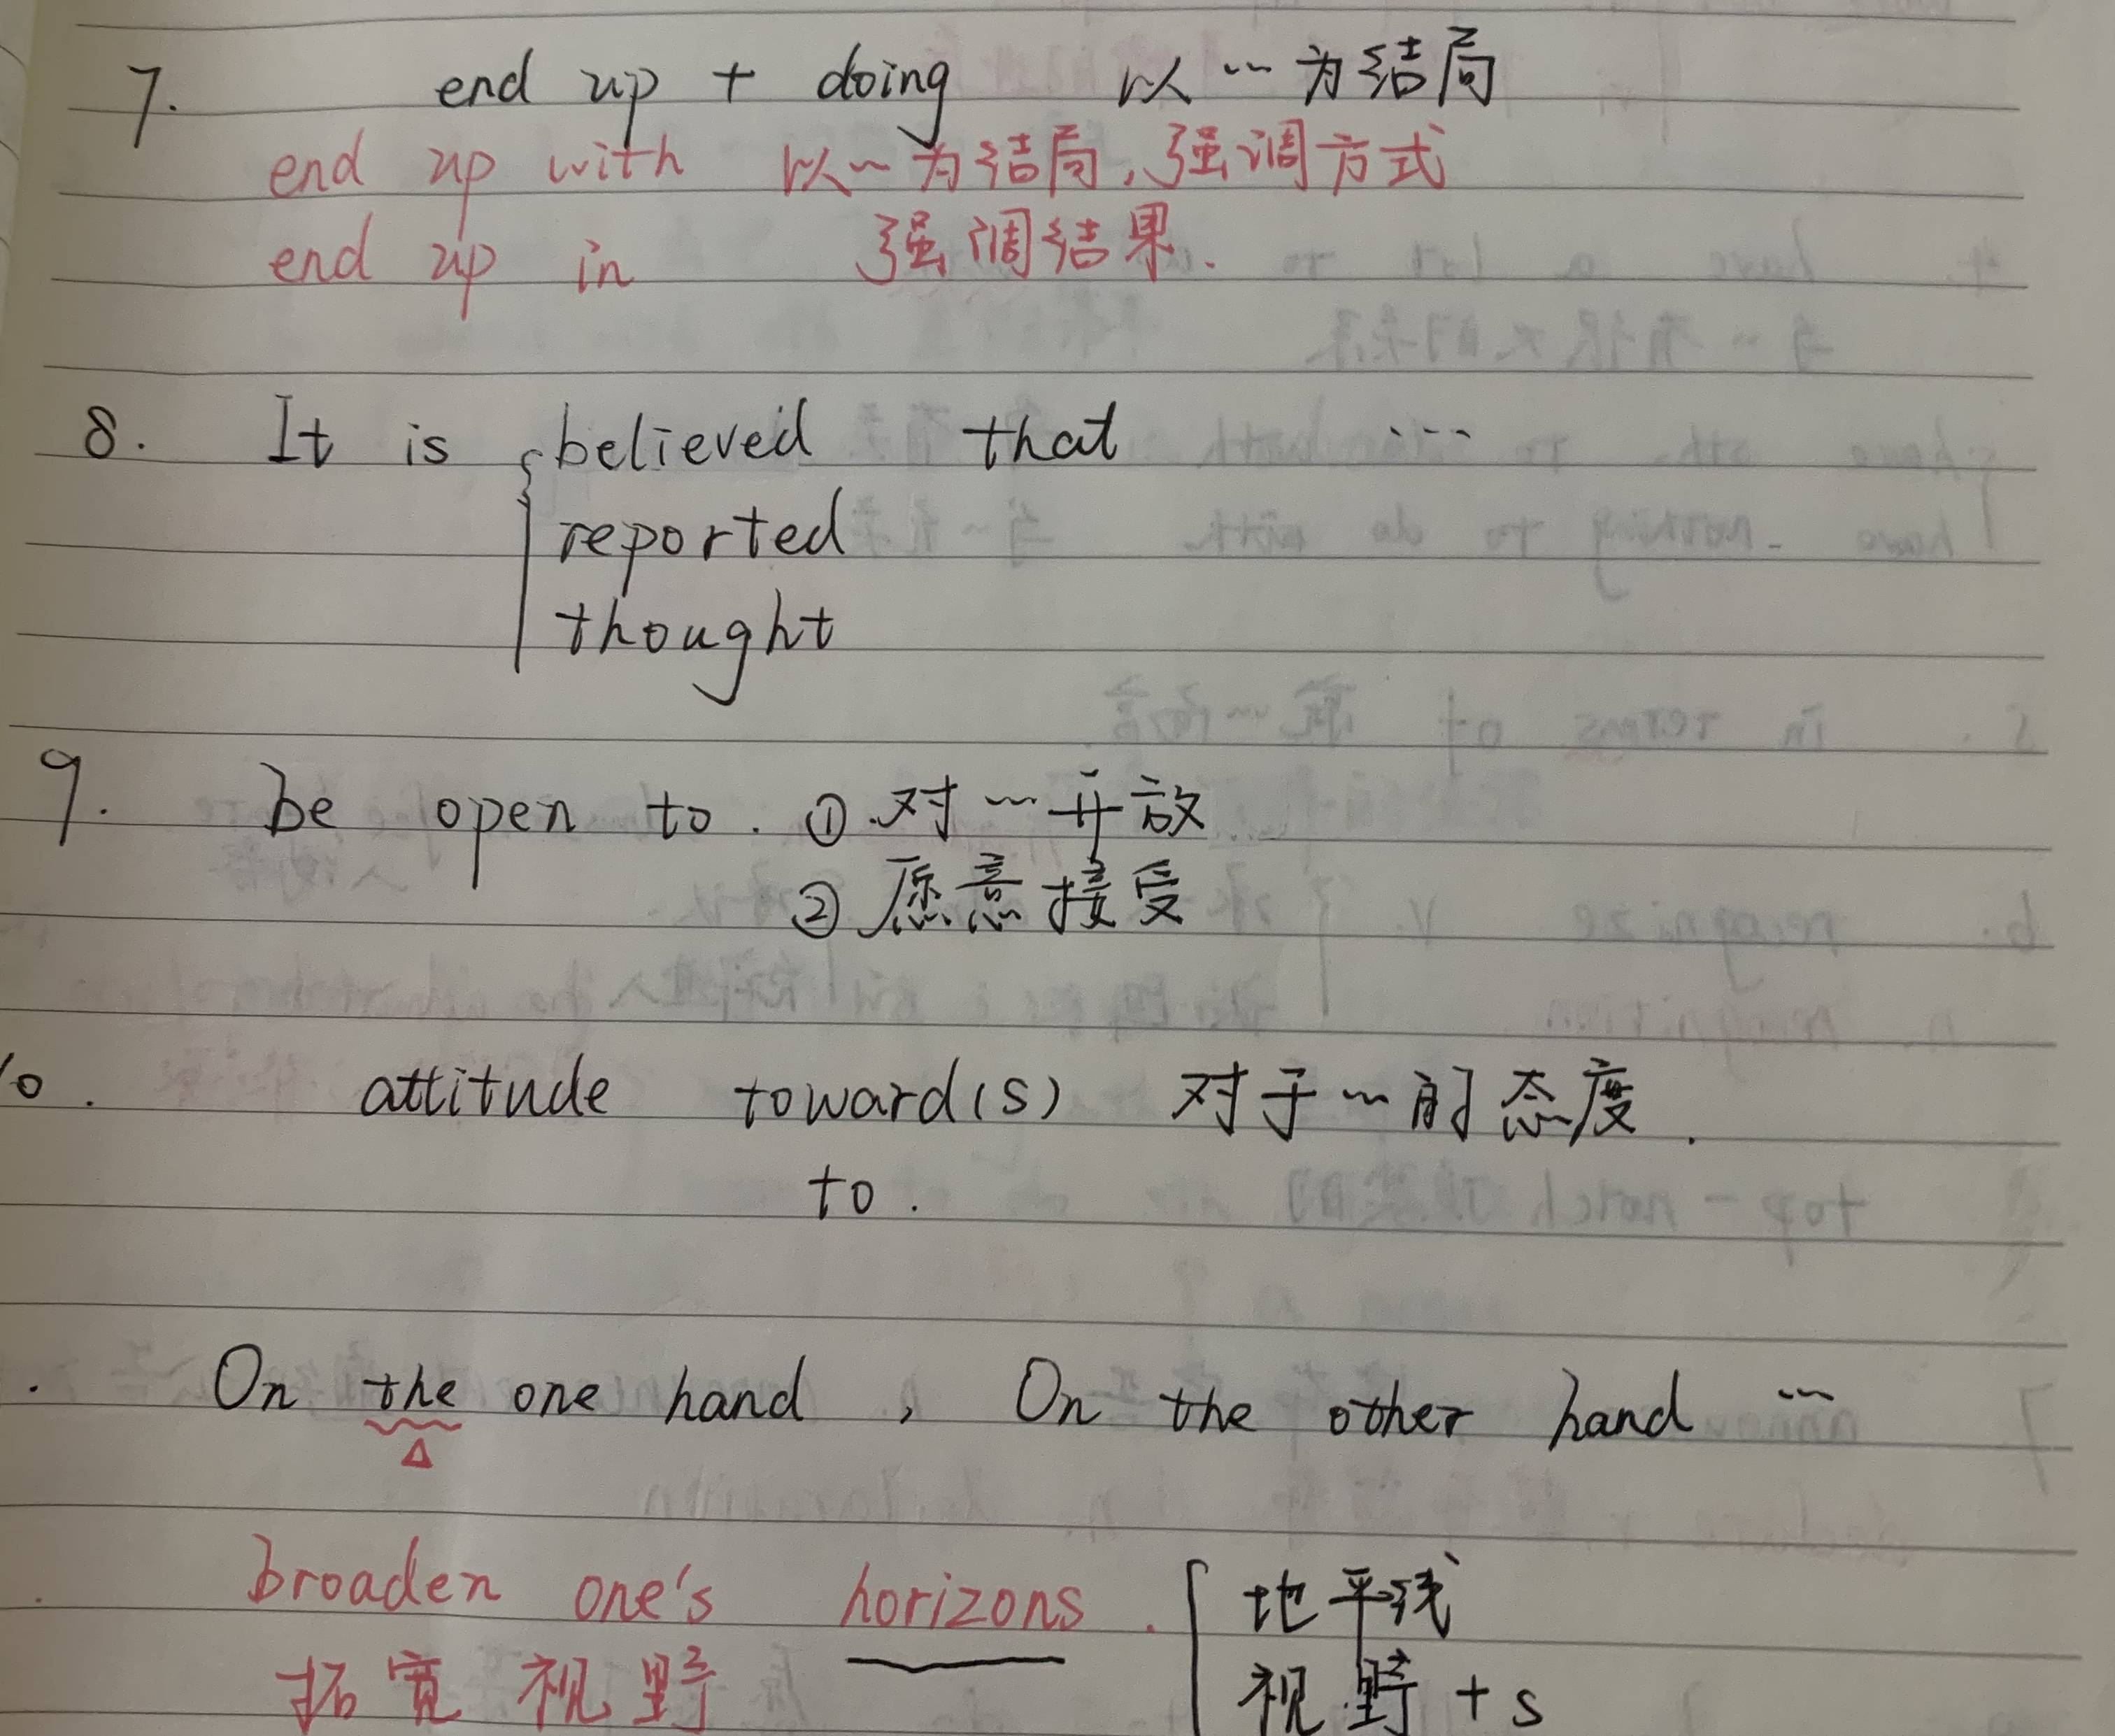 7. end up + doing 以…为结局
end up with 以…为结局,强调方式
end up in 强调结果.
8. It is { believed that …
reported
thought
9. be open to. ①.对…开放
②愿意接受
10. attitude toward(s) 对于…的态度.
to.
. On the one hand, On the other hand …
△
. broaden one's horizons. [ 地平线
拓宽视野 视野+s